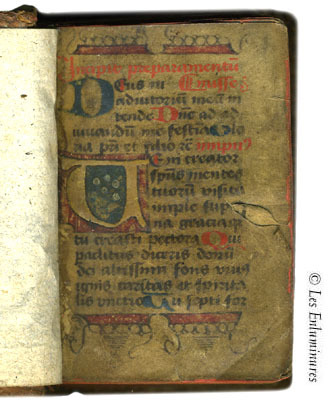 Incipit preparamentum
Deus in Emisse
adiutoriu meu in
tende Dne ad ad
iuuandum me festia Glo
ria pri et filio rc
Veni creator
spus mentes
tuorum visita
imple sup
na gracia q
tu creasti pectora Qui
paclitus diceris donu
dei altissimi fons viuus
ignis caritas et spirita
lis vnctio Tu septi for
© Les Enluminures